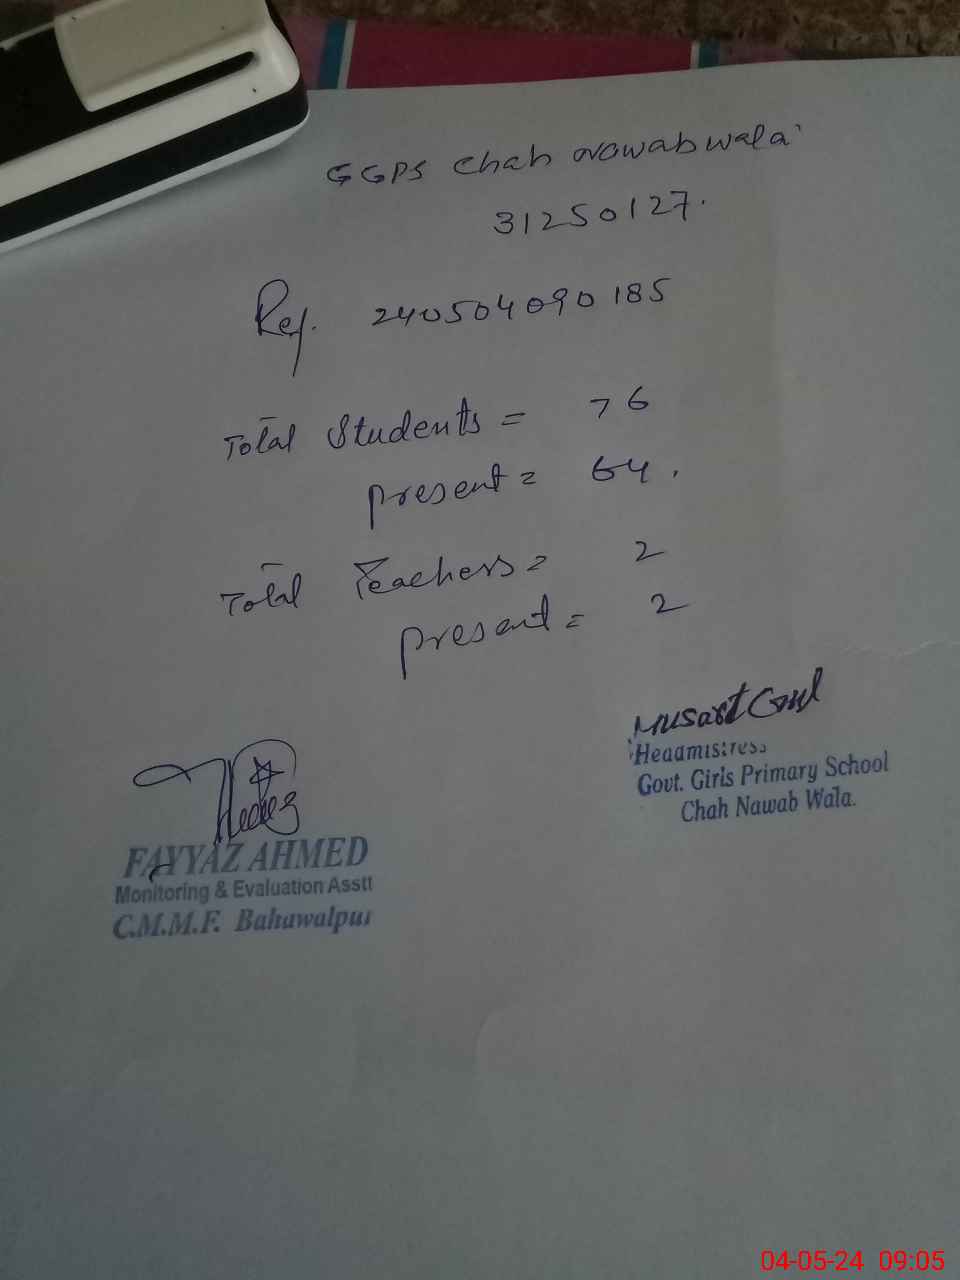 GGPS Chah Nawabwala
31250127.
Ref. 240504090185
Total Students = 76
present = 64.
Total Teachers = 2
present = 2
Musart Gul
Headmistress
Govt. Girls Primary School
Chah Nawab Wala.
FAYYAZ AHMED
Monitoring & Evaluation Asstt
C.M.M.F. Bahawalpur
04-05-24 09:05